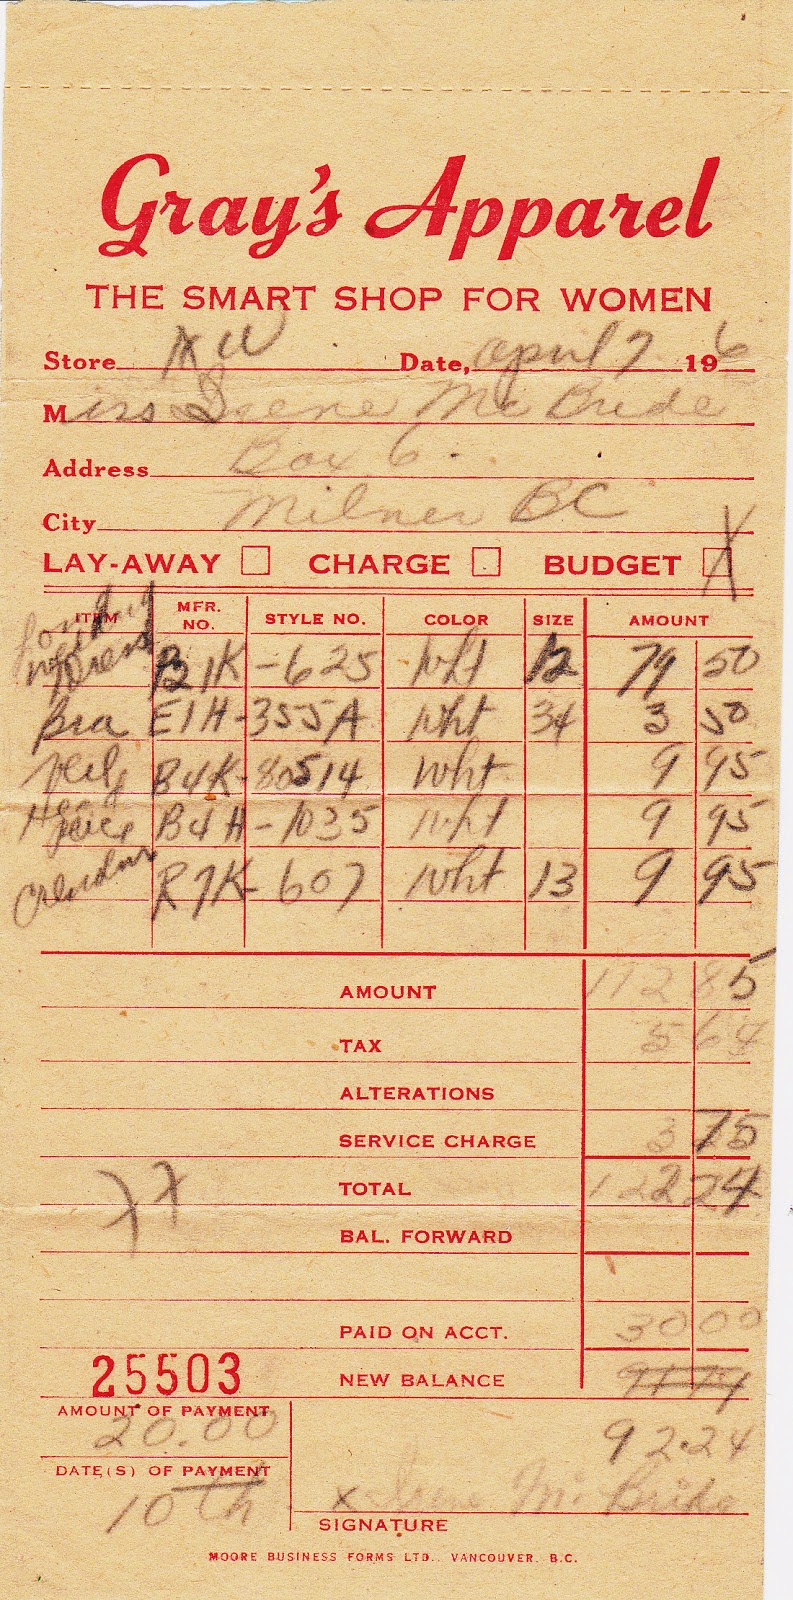 Gray's Apparel
THE SMART SHOP FOR WOMEN
Store Date, April 7 196
Miss Irene McBride
Address Box 6
City Milner BC
LAY-AWAY CHARGE BUDGET X
ITEM MFR. NO. STYLE NO. COLOR SIZE AMOUNT
Dress B1K-625 Wht 12 79 50
Bra E1H-355A Wht 34 3 50
Veil B4K-80514 Wht 9 95
Head piece B4H-1035 Wht 9 95
R7K-607 Wht 13 9 95
AMOUNT 112 85
TAX 5 64
ALTERATIONS
SERVICE CHARGE 3 75
TOTAL 122 24
BAL. FORWARD
PAID ON ACCT. 30 00
25503 NEW BALANCE
AMOUNT OF PAYMENT
20.00 92.24
DATE(S) OF PAYMENT
10th x Irene McBride
SIGNATURE
MOORE BUSINESS FORMS LTD., VANCOUVER, B.C.